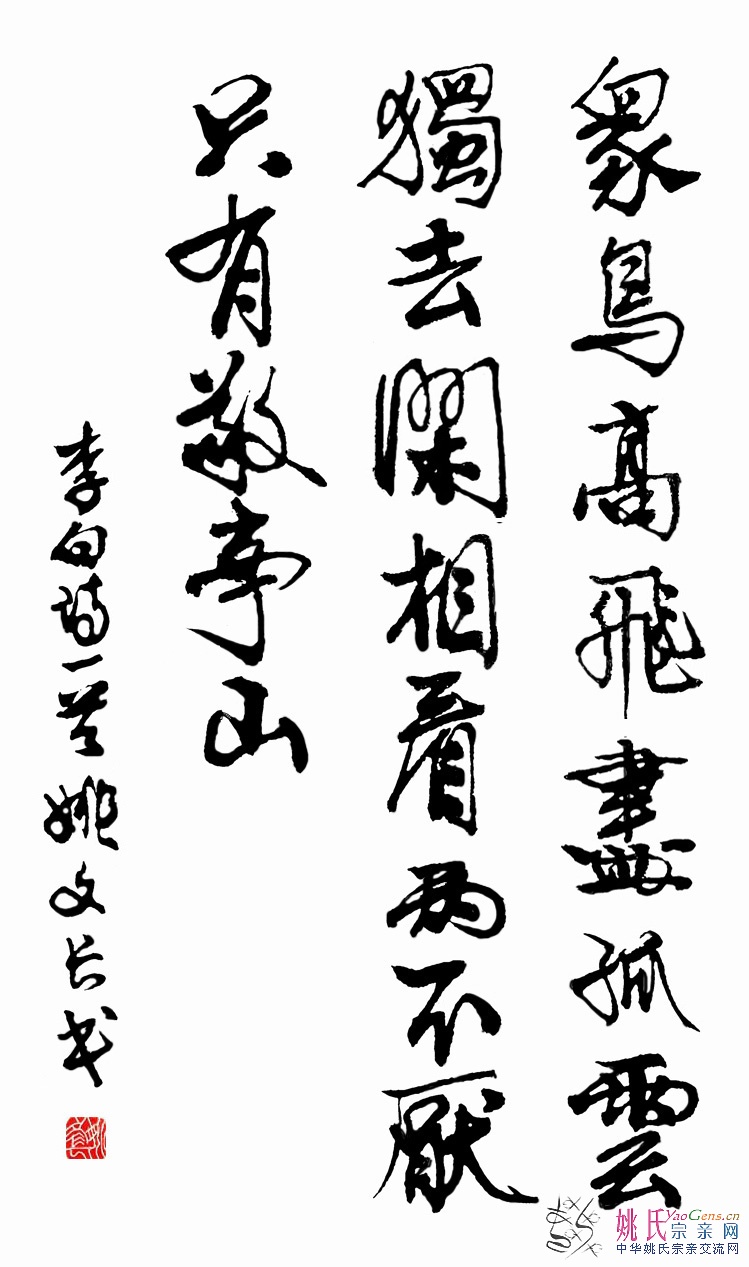 衆鳥高飛盡孤雲
獨去閑相看兩不厭
只有敬亭山
李白詩一首姚文长书
YaoGens.cn
姚氏宗亲网
中华姚氏宗亲交流网